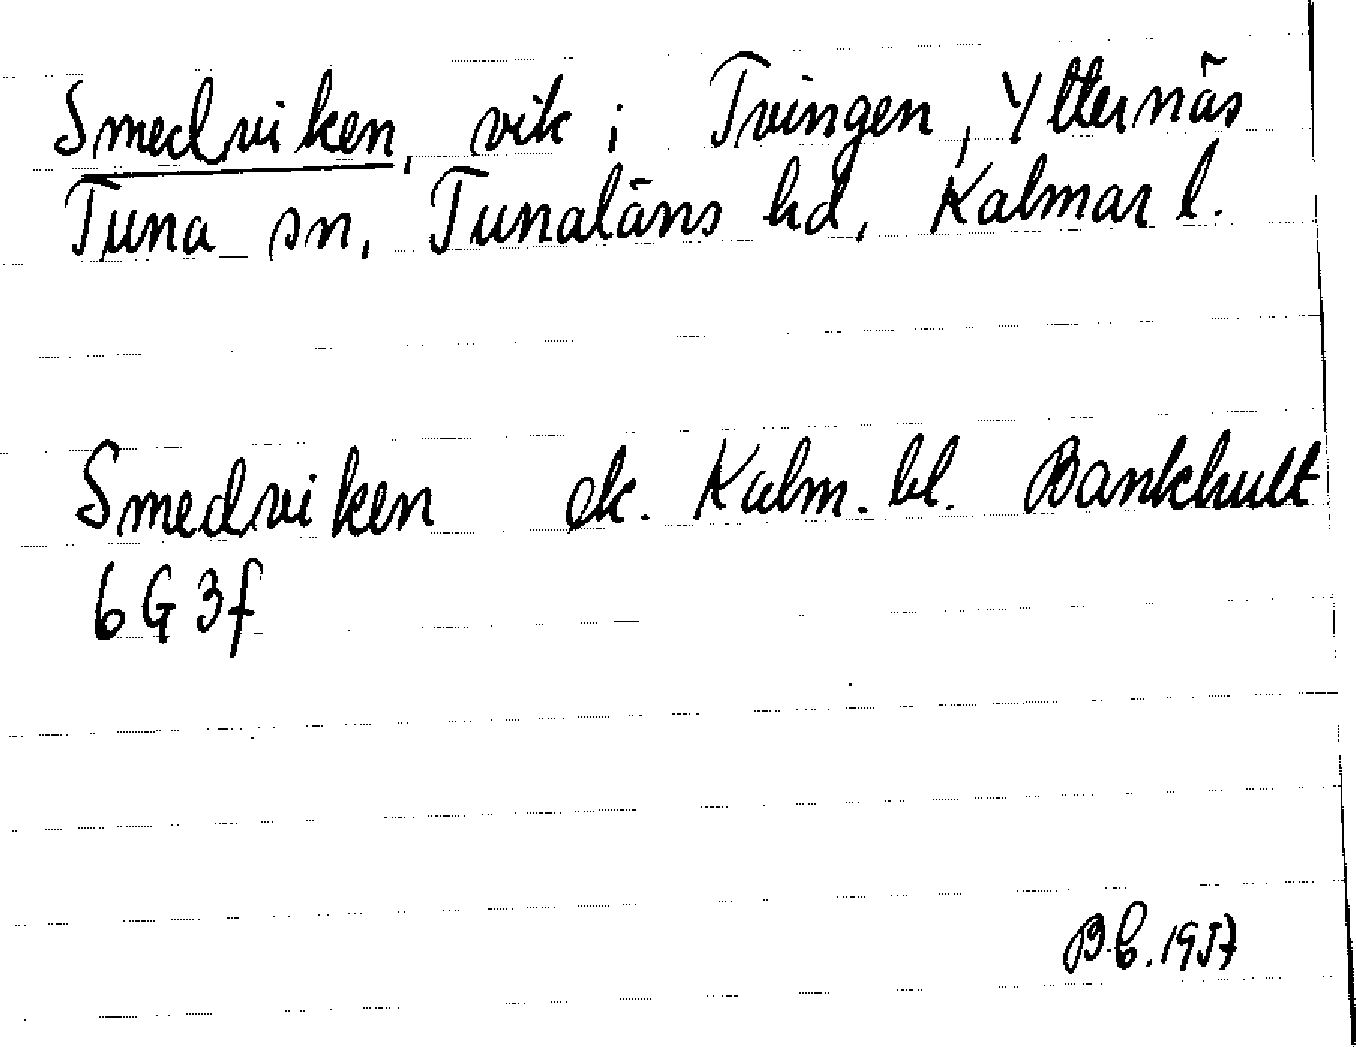 Smedviken, vik i Tvingen, Ytternäs
Tuna sn, Tunaläns hd, Kalmar l.
Smedviken ek. Kalm. bl. Bankhult
6G3f
B.b. 1957